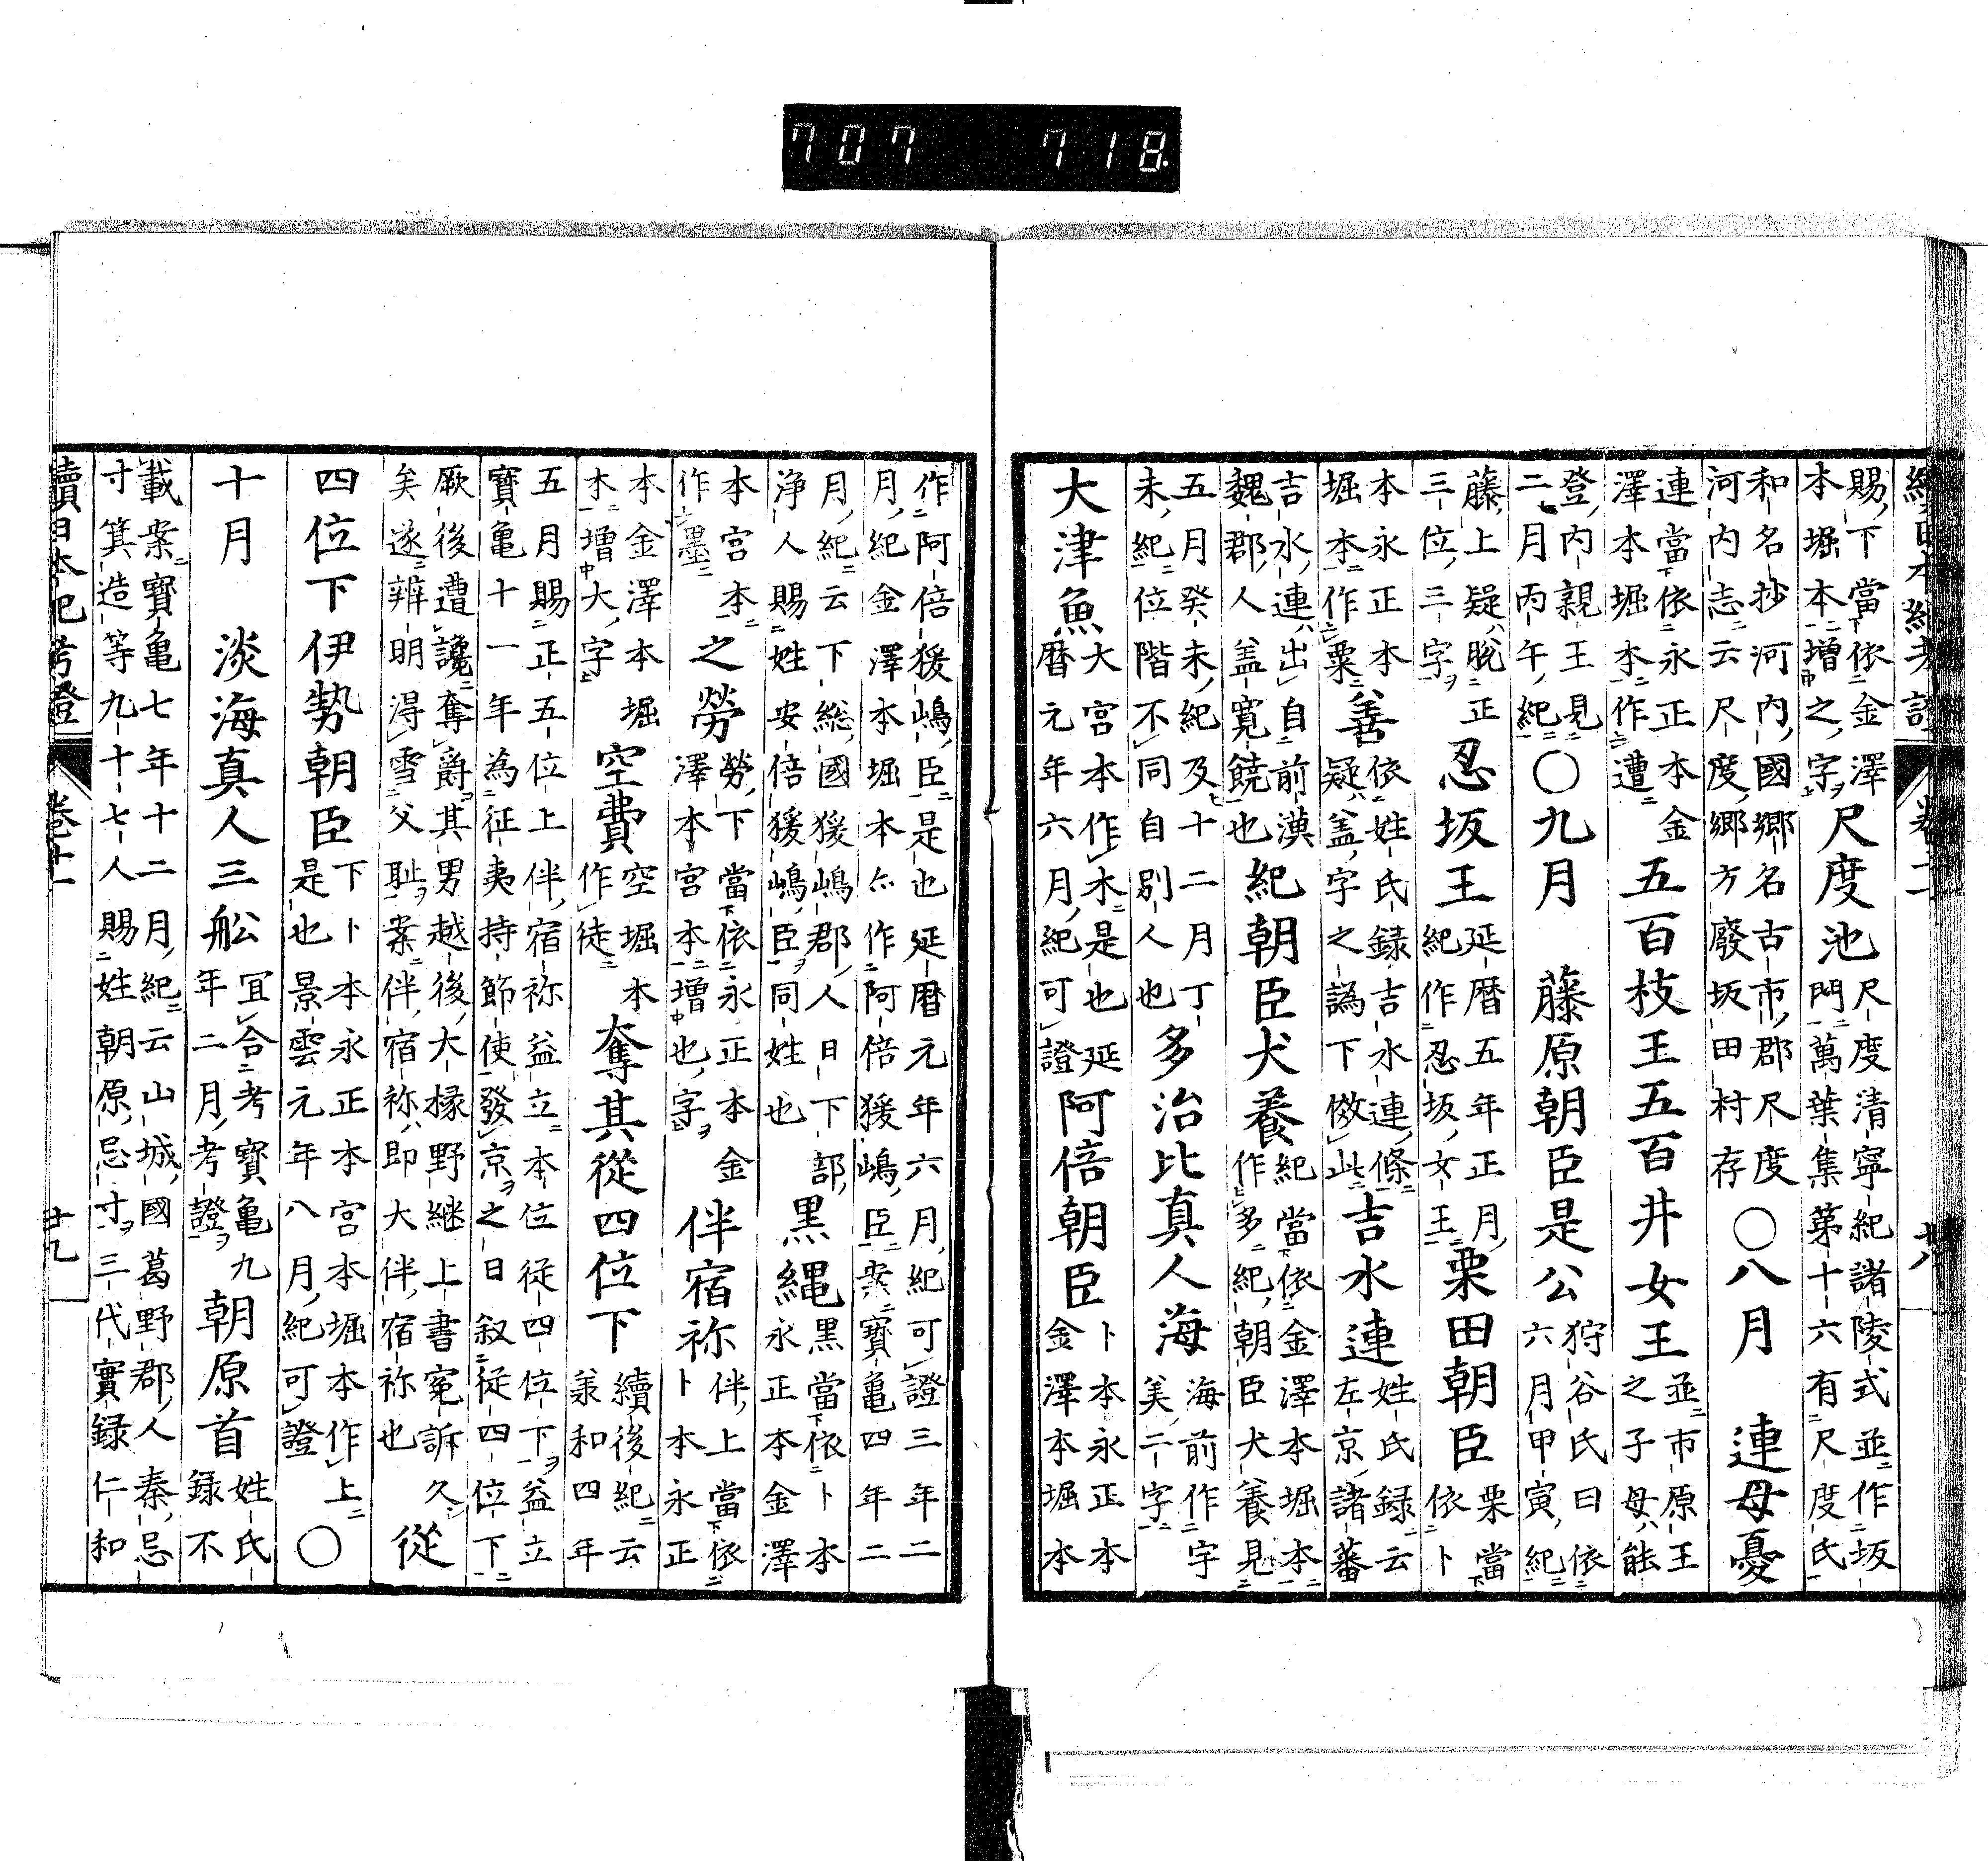 707 718
賜下當依金澤
本堀本増之字
尺度池
尺度清寧紀諸陵式並作坂
門萬葉集第十六有尺度氏
和名抄河内國郷名古市郡尺度
河内志云尺度郷方廢坂田村存
〇八月 連母憂
連當依永正本金
澤本堀本作遭
五百枝王五百井女王
並市原王
之子母能
登内親王見
二月丙午紀
〇九月 藤原朝臣是公
狩谷氏曰依
六月甲寅紀
藤上疑脱正
三位三字
忍坂王
延暦五年正月
紀作忍坂女王
栗田朝臣
栗當
依卜
本永正本
堀本作粟
善
依姓氏録吉水連條
疑蓋字之譌下倣此
吉水連
姓氏録云
左京諸蕃
吉水連出自前漢
魏郡人蓋寛饒也
紀朝臣犬養
紀當依金澤本堀本
作多紀朝臣犬養見
五月癸未紀及十二月丁
未紀位階不同自別人也
多治比真人海
海前作宇
美二字
大津魚
大宮本作木是也延
暦元年六月紀可證
阿倍朝臣
卜本永正本
金澤本堀本
作阿倍猨嶋臣是也延暦元年六月紀可證三年二
月紀金澤本堀本亦作阿倍猨嶋臣案寶亀四年二
月紀云下総國猨嶋郡人日下部
浄人賜姓安倍猨嶋臣同姓也
黒縄
黒當依卜本
永正本金澤
本宮本
作墨
之勞
勞下當依永正本金
澤本宮本増也字
伴宿祢
伴上當依
卜本永正
本金澤本堀
本増大字
空費
空堀本
作徒
奪其從四位下
續後紀云
羕和四年
五月賜正五位上伴宿祢益立本位從四位下益立
寶亀十一年為征夷持節使發京之日叙從四位下
厥後遭讒奪爵其男越後大椽野継上書寃訴久
矣遂辨明得雪父耻案伴宿祢即大伴宿祢也
從
四位下伊勢朝臣
下卜本永正本宮本堀本作上
是也景雲元年八月紀可證
〇
十月 淡海真人三舩
宜合考寶亀九
年二月考證
朝原首
姓氏
録不
載案寶亀七年十二月紀云山城國葛野郡人秦忌
寸箕造等九十七人賜姓朝原忌寸三代實録仁和
續日本紀考證 卷十一 廿九